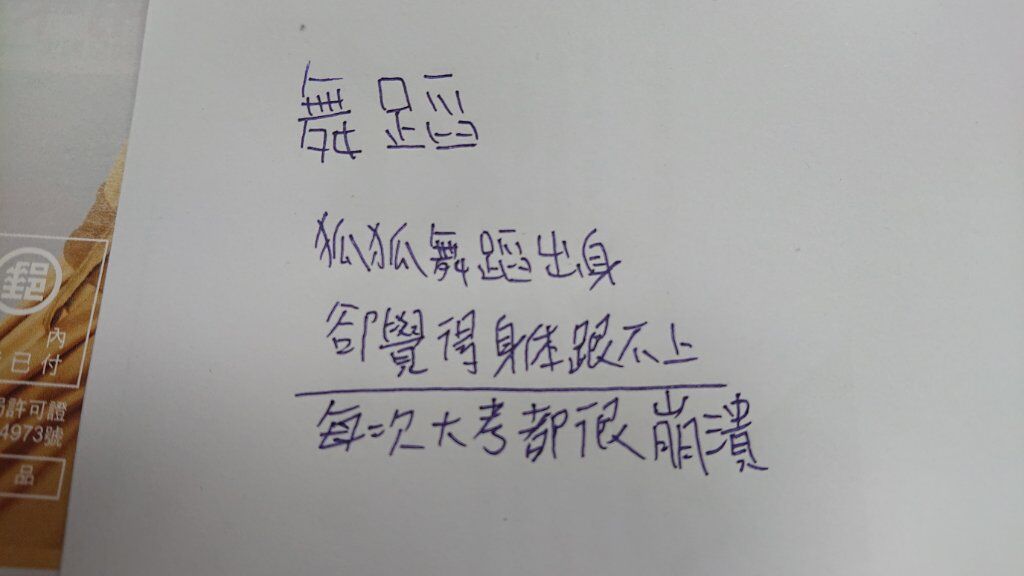 舞蹈
狐狐舞蹈出身
卻覺得身体跟不上
每次大考都很崩潰
郵
內
已付
許可證
4973號
品